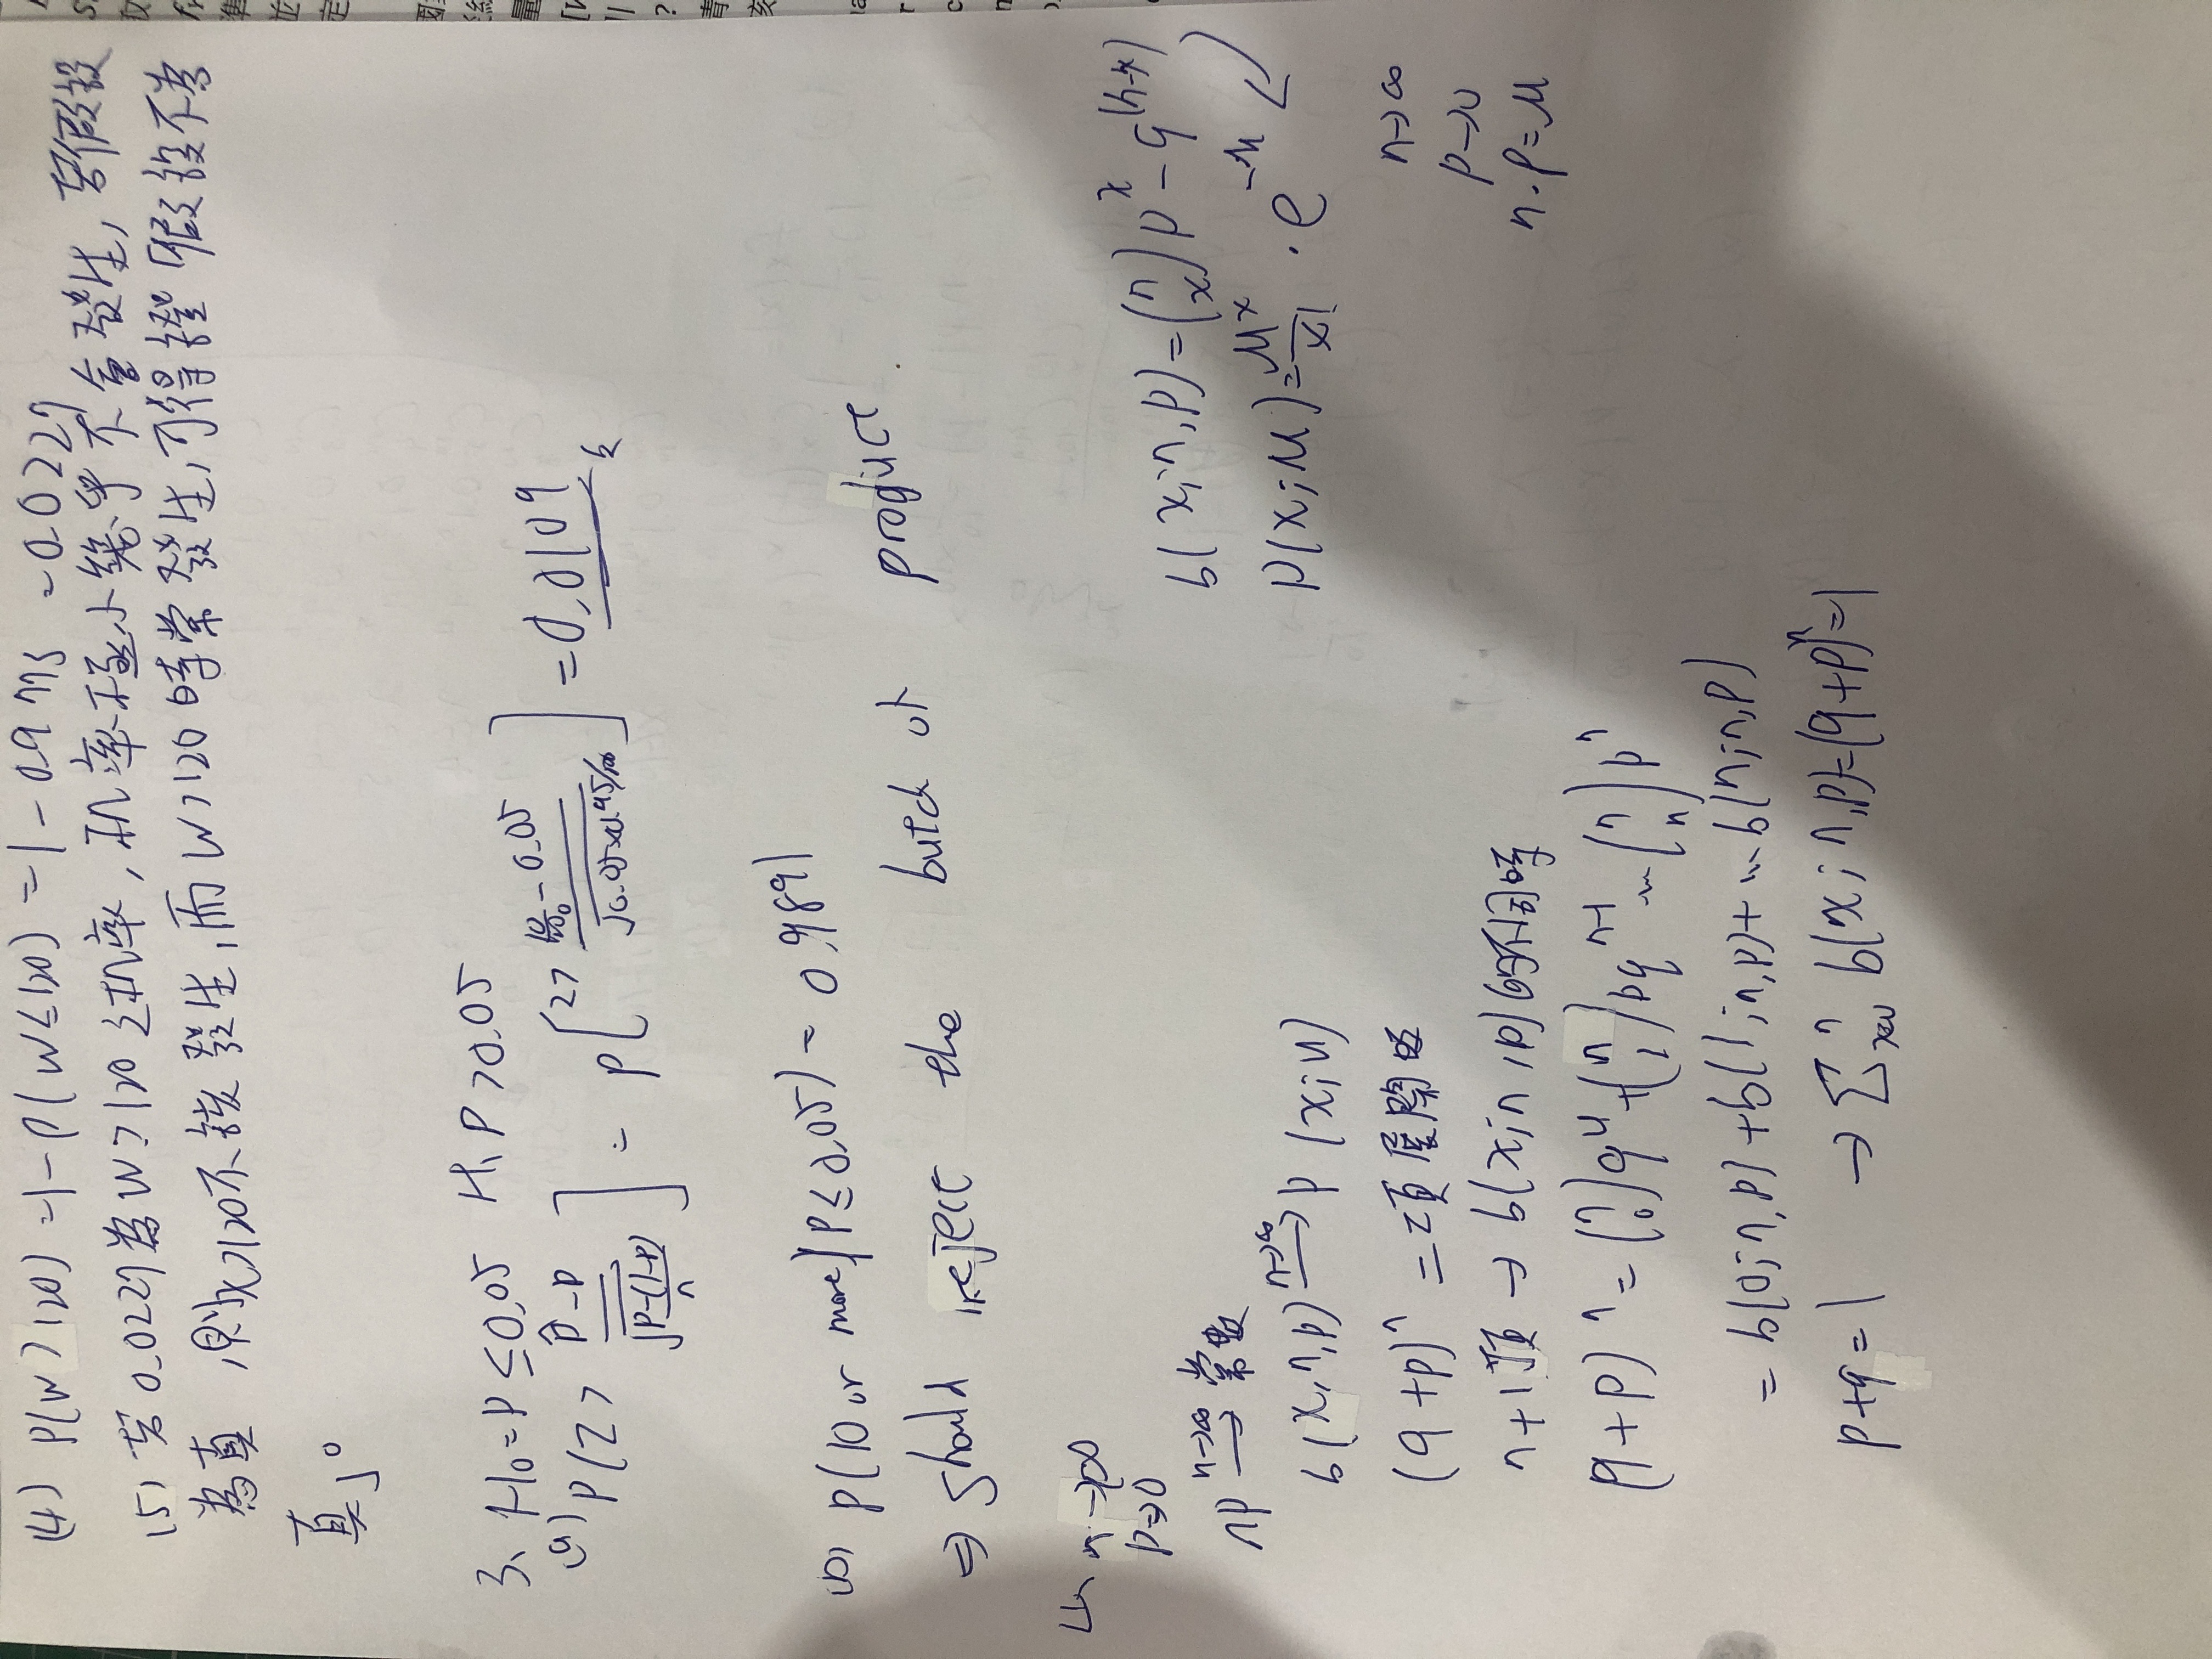 (4) P(W>120) = 1-P(W≤120) = 1-0.9773 = 0.0227
(5) 若0.0227為W>120之机率, 机率極小幾乎不會發生, 若假設
為真, 則X>120不該發生, 而W>120時常發生, 可得證「假設不為
真」。
3、H₀=P≤0.05 H₁ P>0.05
(a) P(Z> (P̂-P)/√(P-(1-P)/n)] = P[Z> (10/100-0.05)/√(0.05×0.95/100)] = 0.0109
(b) P(10 or more/P≤0.05) = 0.9891
⇒ should reject the of product.
4、n→∞
P→0
nP n→∞→ 常數
b(x,n,p) n→∞→ P(x;u)
(q+p)ⁿ = 二項展開
n+1項 → b(x;n,p)的不同
(q+p)ⁿ = (n 0)qⁿ+(n 1)pqⁿ⁻¹ … (n n)pⁿ
= b(0;n,p)+b(1;n,p)+…b(n;n,p)
p+q=1 → Σₓ₌₀ⁿ b(x;n,p)=(q+p)ⁿ=1
b(x;n,p)=(n x)pˣ-q⁽ⁿ⁻ˣ⁾
P(x;μ)=μˣ/x!·e^-μ
n→∞
p→0
n·p=μ